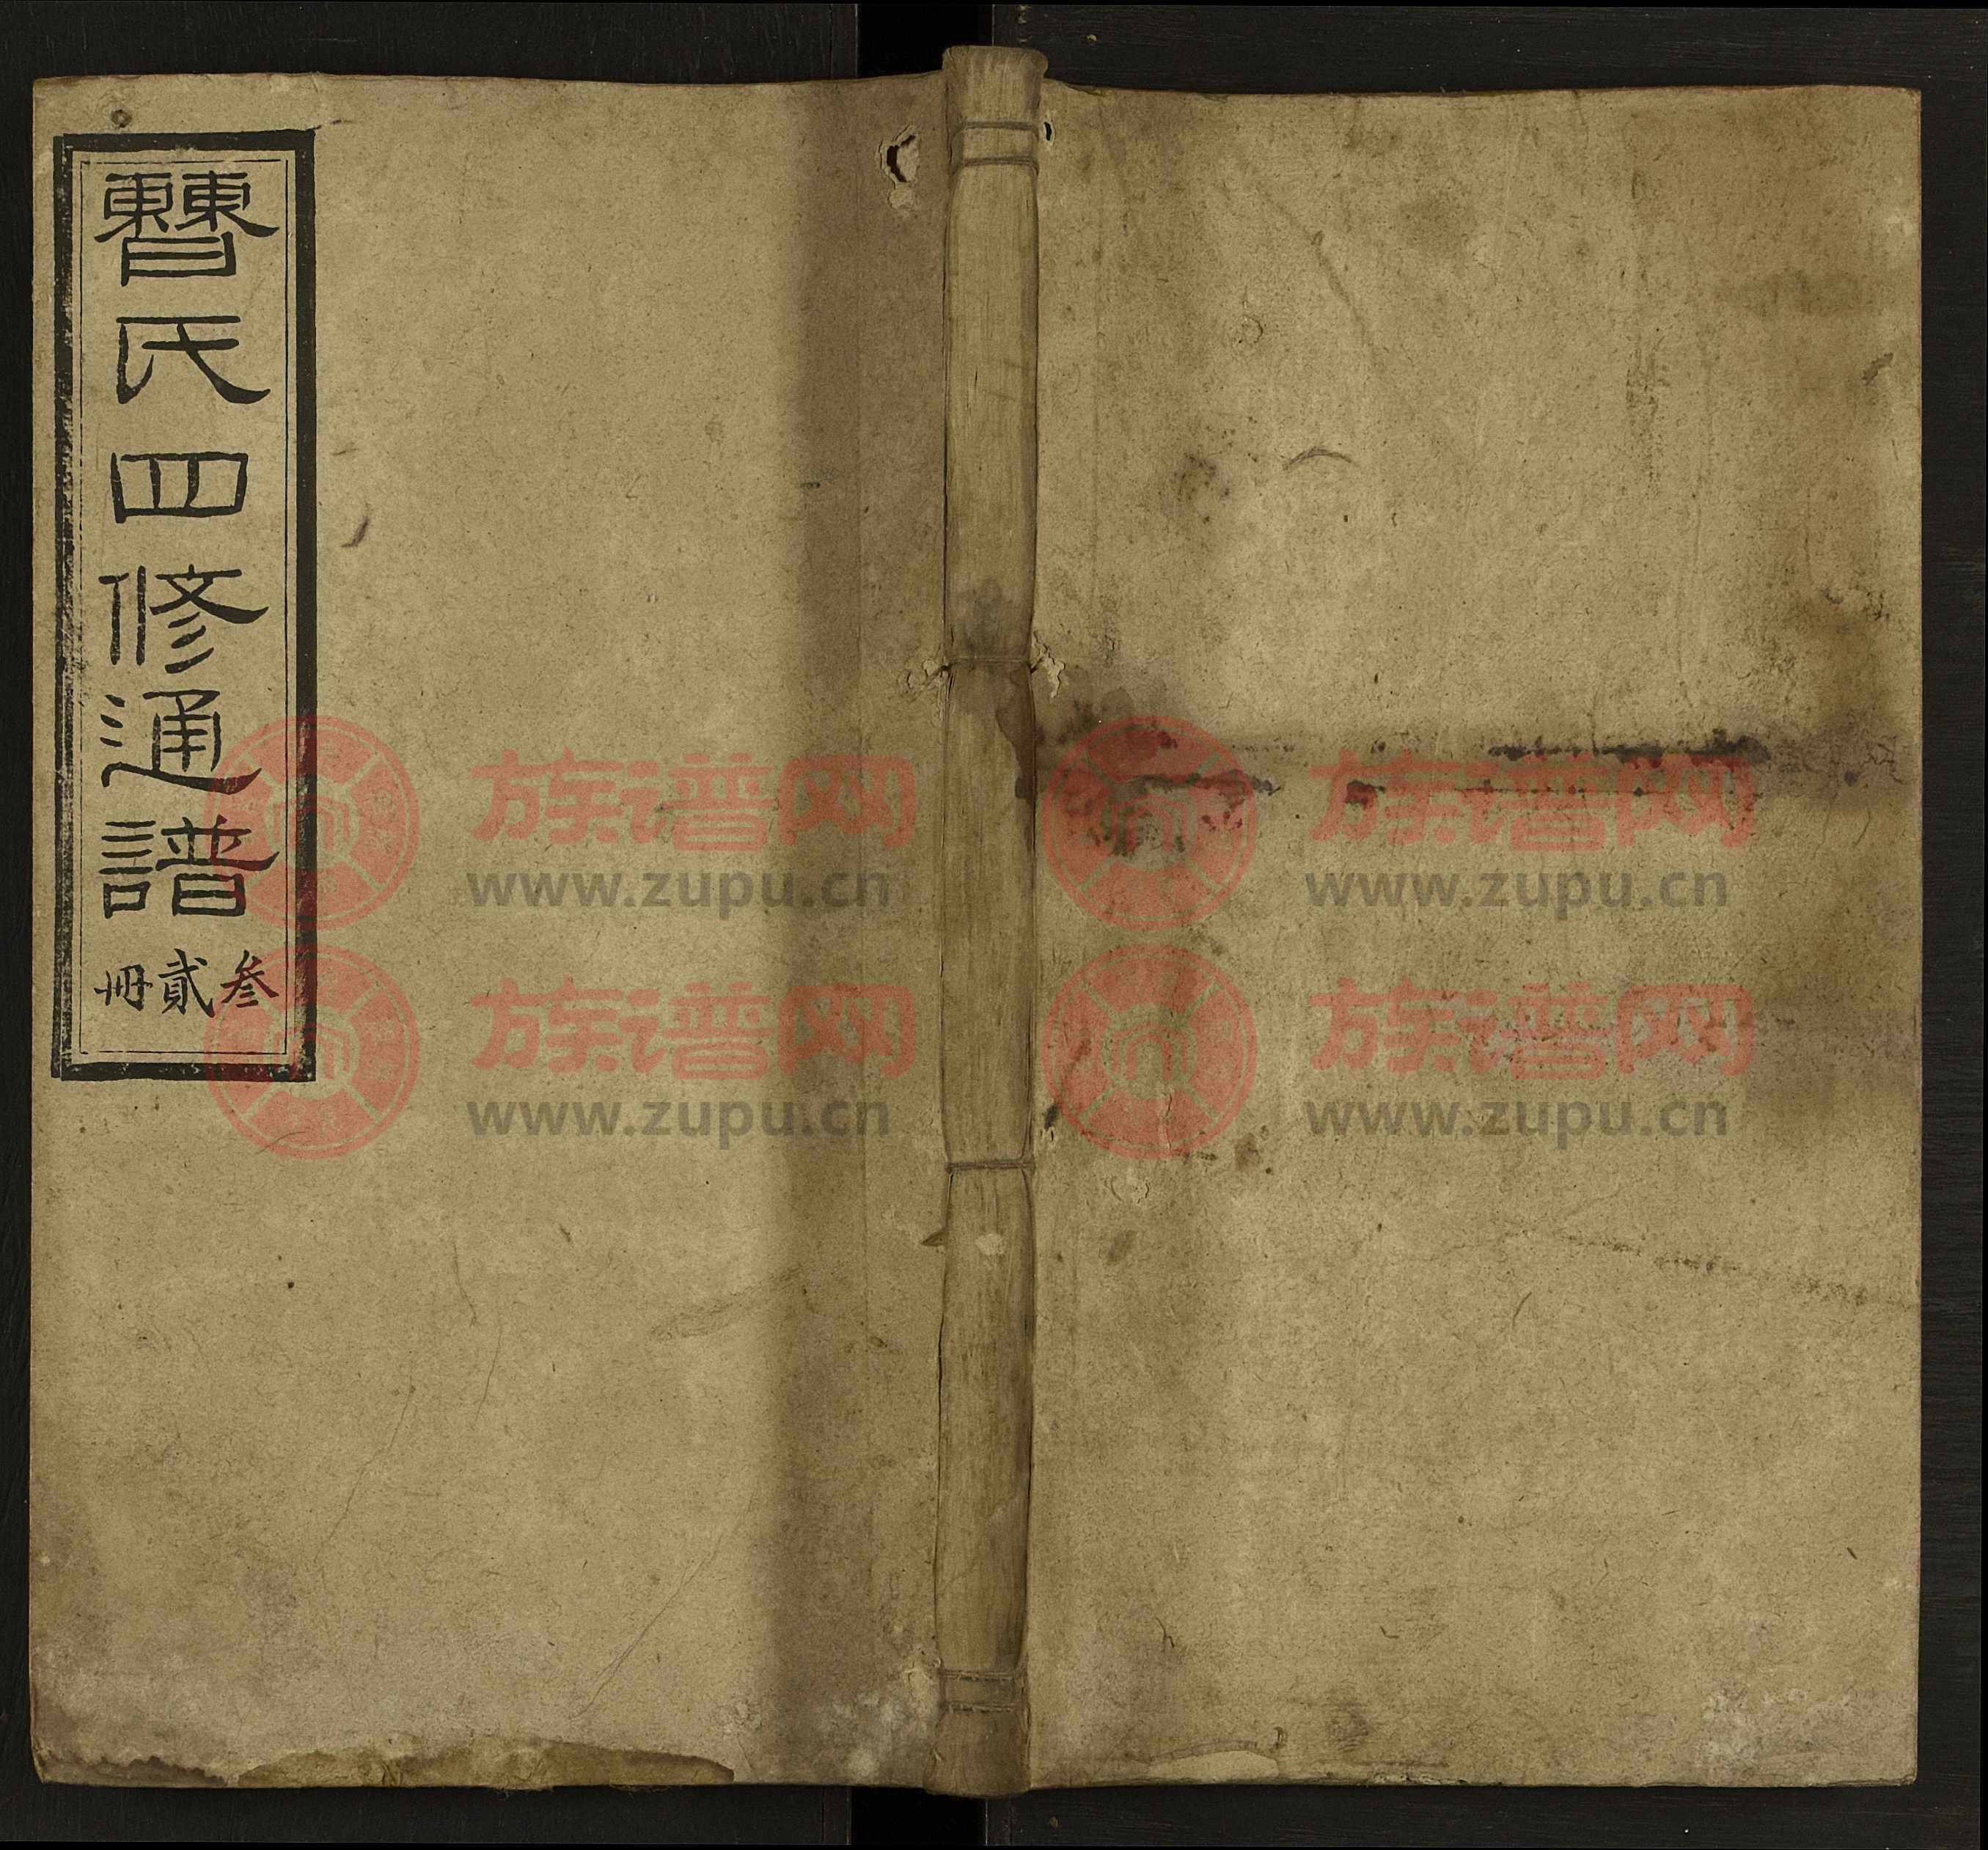 𣍘氏四修通譜
叁貳冊
族谱网
www.zupu.cn
族谱网
www.zupu.cn
族谱网
www.zupu.cn
族谱网
www.zupu.cn